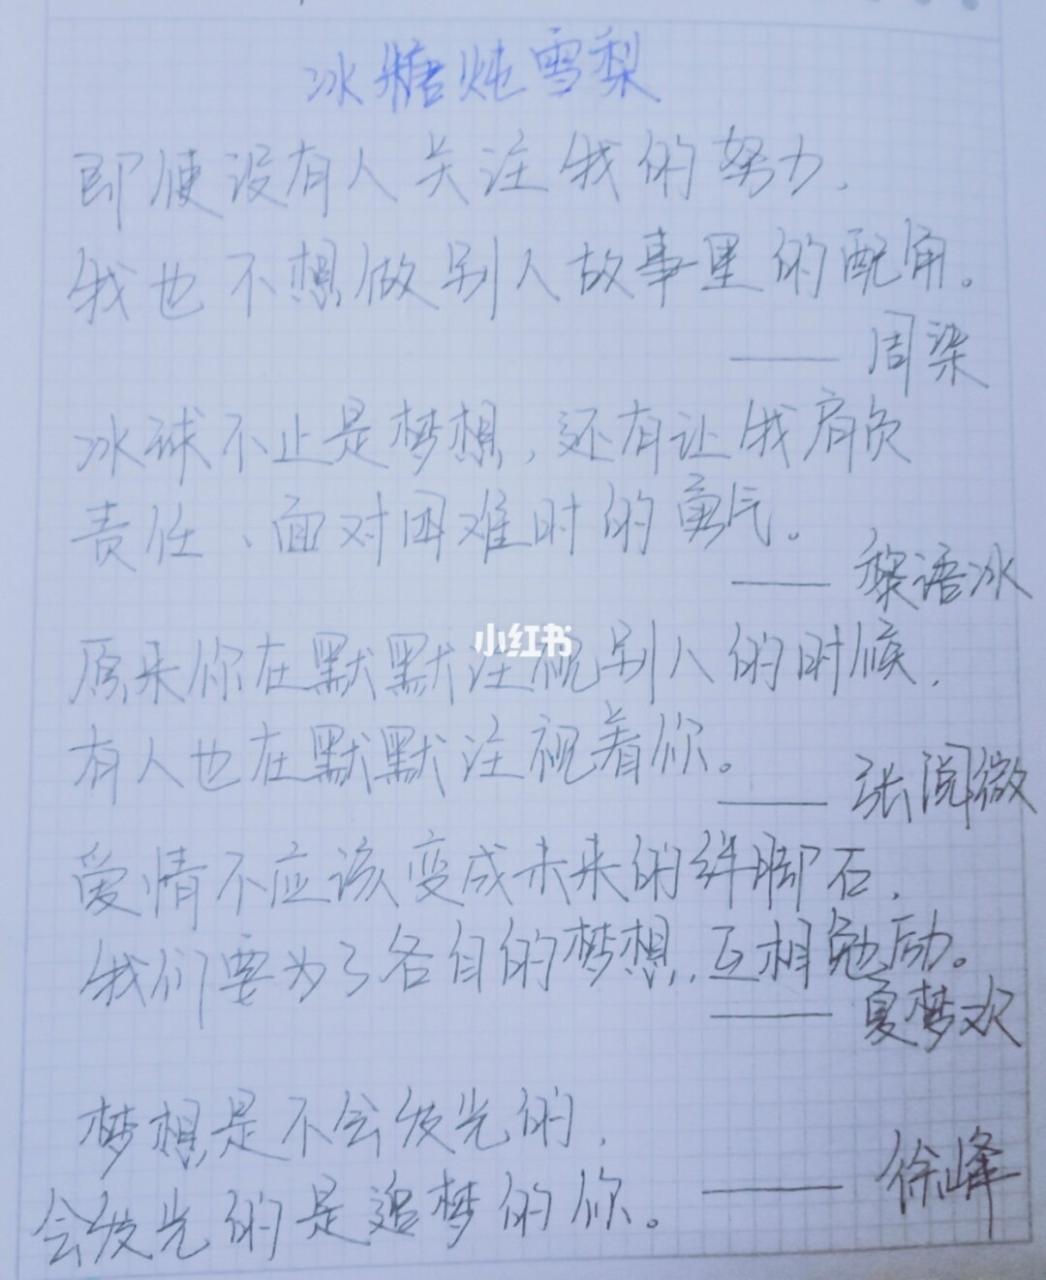 冰糖炖雪梨
即便没有人关注我的努力，
我也不想做别人故事里的配角。
—— 周染
冰球不止是梦想，还有让我肩负
责任、面对困难时的勇气。
—— 黎语冰
原来你在默默注视别人的时候，
小红书
有人也在默默注视着你。
—— 张阅微
爱情不应该变成未来的绊脚石，
我们要为了各自的梦想，互相勉励。
—— 夏梦欢
梦想是不会发光的，
会发光的是追梦的你。
—— 徐峰